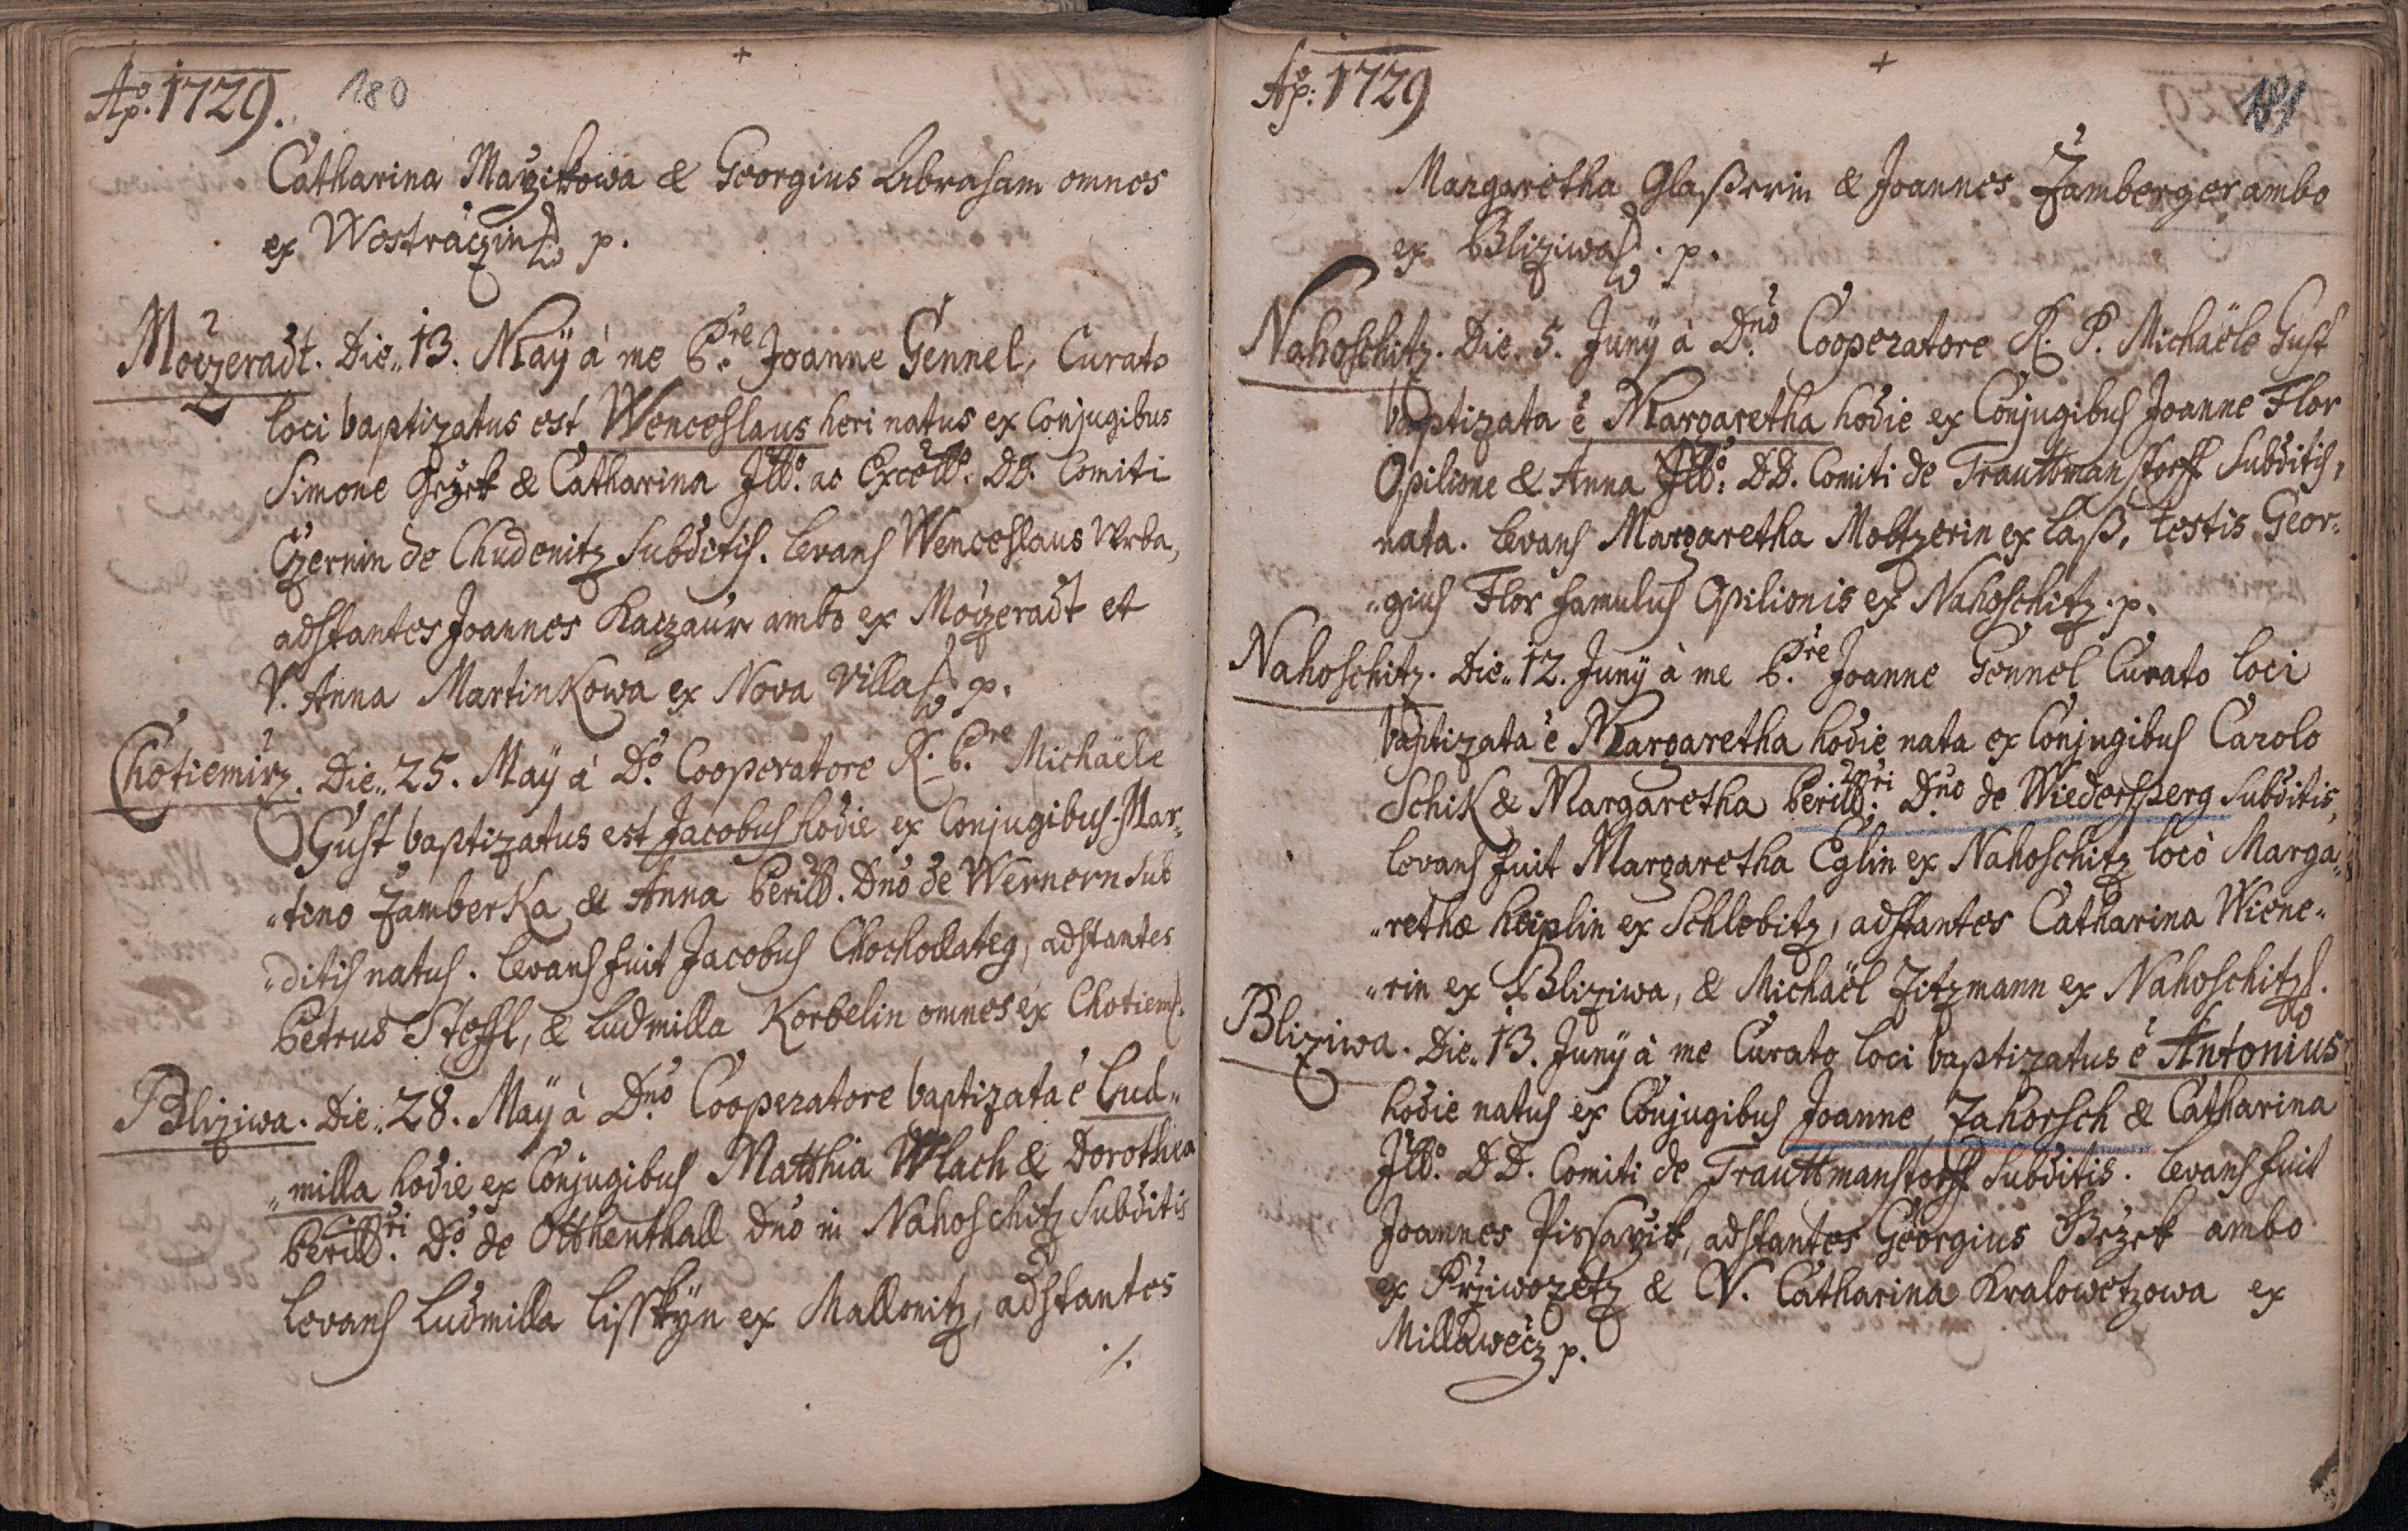 Aọ: 1729. 180
Catharina Mayzikowa & Georgius Abraham omnes
ex Wostračzin p.
Močzeradt. Die 13. Maÿ à me P.re Joanne Gennel, Curato
loci baptizatus est Wenceslaus heri natus ex Conjugibus
Simone & Catharina Illo. ac Excello. DD. Comiti
Czernin de Chudenitz Subditis. levans Wenceslaus Wrba,
adstantes Joannes Kaczaur ambo ex Močzeradt et
V. Anna Martinkowa ex Nova Villa p.
Chotiemirz. Die 25. Maÿ à Do. Cooperatore R. P.re Michaële
Gust baptizatus est Jacobus hodie ex Conjugibus Mar„
„tino Zamberka & Anna Perill. Dno de Wernern Sub
„ditis natus. levans fuit Jacobus Chochollateg, adstantes
Petrus Steffl, & Ludmilla Korbelin omnes ex Chotiem.
Bliziwa. Die 28. Maÿ à Dno Cooperatore baptizata è Lud„
„milla hodie ex Conjugibus Matthia Wlach & Dorothea
Perill.ri Do. de Otthenthall Dno in Nahoschitz Subditis
levans Ludmilla Lisskÿn ex Mallonitz, adstantes
./.
Aọ: 1729 181
Margaretha Glaßerin & Joannes Zamberger ambo
ex Bliziwa p.
Nahoschitz. Die 5. Junÿ à Dno Cooperatore R. P. Michaële Gust
baptizata è Margaretha hodie ex Conjugibus Joanne Flor
Opilione & Anna Illo: DD. Comiti de Trauttmanstorff Subditis,
nata. levans Margaretha Moltzerin ex Laß, testis Geor„
„gius Flor famulus Opilionis ex Nahoschitz. p.
Nahoschitz. Die 12. Junÿ à me P.re Joanne Gennel Curato loci
baptizata è Margaretha hodie nata ex Conjugibus Carolo
Schik & Margaretha Perill.ri Dno de Wiedersperg Subditis,
levans fuit Margaretha Eglin ex Nahoschitz locò Marga„
„rethæ Heiplin ex Schlebitz, adstantes Catharina Wiene„
„rin ex Bliziwa, & Michaël Zitzmann ex Nahoschitz.
Bliziwa. Die 13. Junÿ à me Curato loci baptizatus è Antonius
hodie natus ex Conjugibus Joanne Zahorsch & Catharina
Illo. DD. Comiti de Trauttmanstorff Subditis. levans fuit
Joannes Pissazik, adstantes Georgius ambo
ex Przìwozetz & V. Catharina Kralowetzowa ex
Millaweč p.